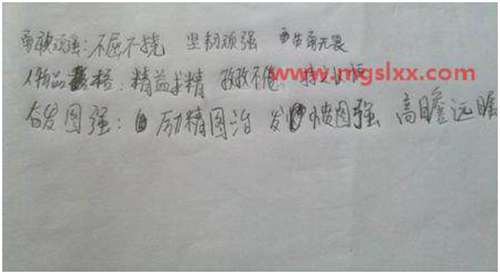 勇敢顽强:不屈不挠 坚韧顽强 勇敢无畏
人物品格:精益求精 孜孜不倦
www.mgslxx.com
奋发图强:励精图治 发愤图强 高瞻远瞩